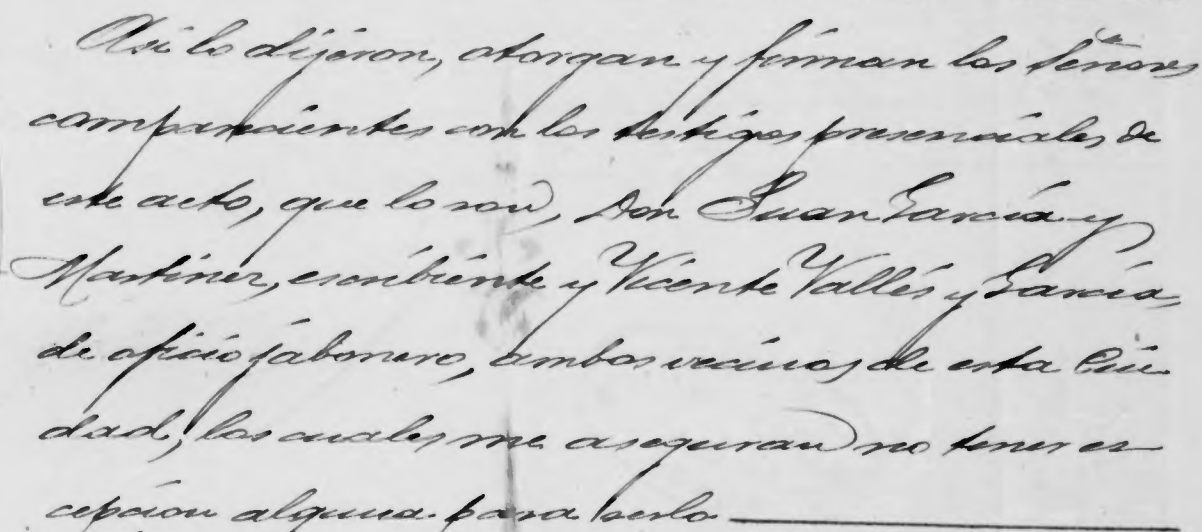 Asi lo dijeron, otorgan y firman los Señores
comparecientes con los testigos presenciales de
este acto, que lo son, Don Juan García y
Martinez, escribiente y Vicente Vallés y García,
de oficio jabonero, ambos vecinos de esta Ciu
dad, los cuales me aseguran no tener es
cepcion alguna para serlo